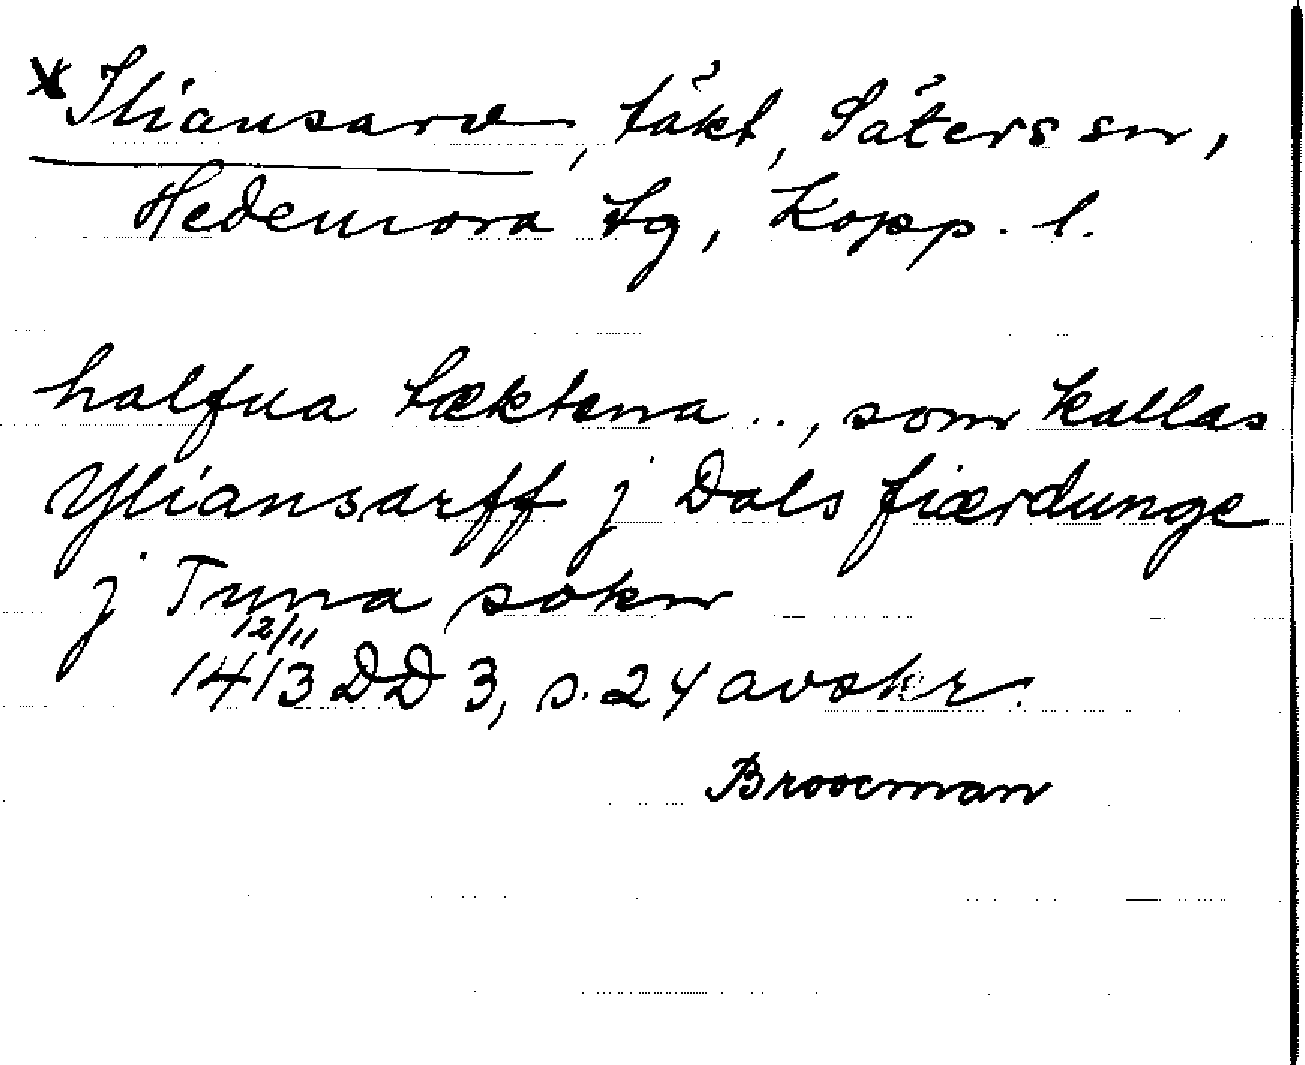 * Iliansarv, täkt, Säters sn,
Hedemora tg, Kopp. l.
halfua tæktena .., som kallas
Yliansarff j Dals fiærdunge
j Tuna sokn
12/11
1413 DD 3, s. 24 avskr.
Brooman